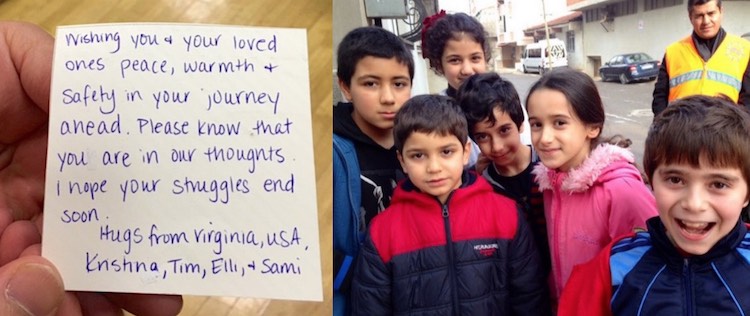 Wishing you & your loved
ones peace, warmth &
safety in your journey
ahead. Please know that
you are in our thoughts.
I hope your struggles end
soon.
Hugs from Virginia, USA,
Krishna, Tim, Elli, & Sami